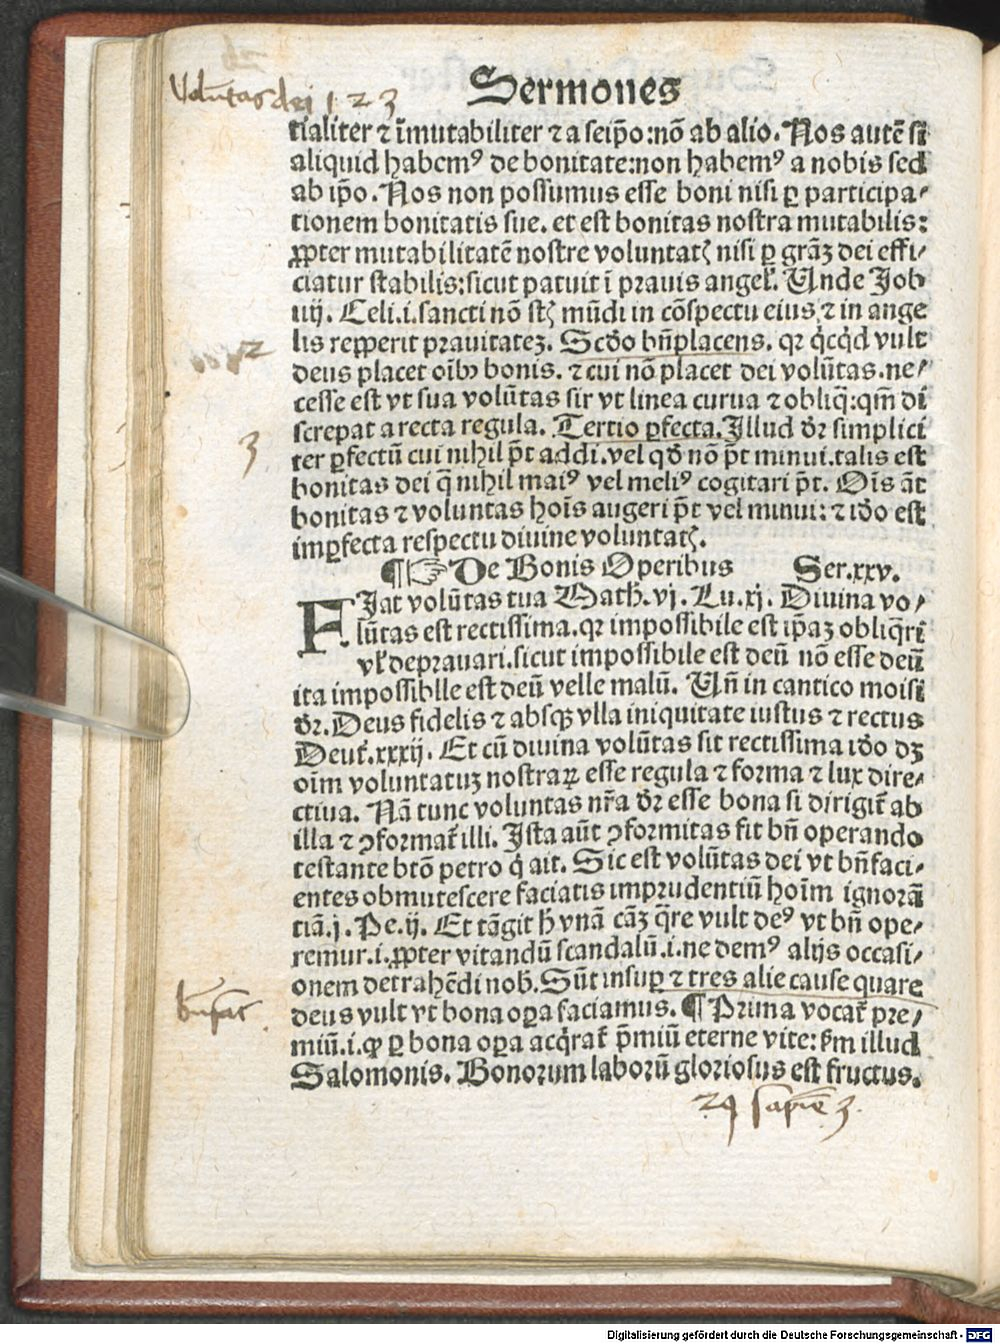 Volūtas dei 1 2 3
Sermones
tialiter ⁊ īmutabiliter ⁊ a seip̄o:nō ab alio. Nos autē si
aliquid habemꝰ de bonitate:non habemꝰ a nobis sed
ab ip̄o. Nos non possumus esse boni nisi ꝑ participa⸗
tionem bonitatis sue. et est bonitas nostra mutabilis:
ꝓpter mutabilitatē nostre voluntatꝭ nisi ꝑ grāꝫ dei effi⸗
ciatur stabilis:sicut patuit ī prauis angel̉. Unde Job
iiij. Celi.i.sancti nō stꝭ mūdi in cōspectu eius ⁊ in ange
lis repperit prauitateꝫ. Scd̄o bn̄placens. qꝛ q̇cq̇d vult
deus placet oībꝫ bonis. ⁊ cui nō placet dei volūtas.ne⸗
cesse est vt sua volūtas sit vt linea curua ⁊ obliq̄:qm̄ di
screpat a recta regula. Tertio ꝑfecta. Illud dr̄ simplici
ter ꝑfectū cui nihil pt̄ addi.vel qd̄ nō pt̄ minui.talis est
bonitas dei q̄ nihil maiꝰ vel meliꝰ cogitari pt̄. Oīs āt
bonitas ⁊ voluntas hoīs augeri pt̄ vel minui: ⁊ iō est
imꝑfecta respectu diuine voluntatꝭ.
¶☞De Bonis Operibus Ser.xxv.
FIat volūtas tua Math̉.vj. Lu.xj. Diuina vo⸗
lūtas est rectissima.qꝛ impossibile est ip̄aꝫ obliq̄ri
vl̉ deprauari.sicut impossibile est deū nō esse deū
ita impossiblle est deū velle malū. Un̄ in cantico moisi
dr̄. Deus fidelis ⁊ absqꝫ vlla iniquitate iustus ⁊ rectus
Deut̉.xxxij. Et cū diuina volūtas sit rectissima iō dꝫ
oīm voluntatuꝫ nostraꝝ esse regula ⁊ forma ⁊ lux dire⸗
ctiua. Nā tunc voluntas nr̄a dr̄ esse bona si dirigit̉ ab
illa ⁊ ꝯformat̉ illi. Ista aūt ꝯformitas fit bn̄ operando
testante btō petro q̇ ait. Sic est volūtas dei vt bn̄faci⸗
entes obmutescere faciatis imprudentiū hoīm ignorā
tiā.j. Pe.ij. Et tāgit h̄ vnā cāꝫ q̄re vult deꝰ vt bn̄ ope⸗
remur.i.ꝓpter vitandū scandalū.i.ne demꝰ alijs occasi⸗
onem detrahēdi nob̉. Sūt insuꝑ ⁊ tres alie cause quare
bn̄fac̄
deus vult vt bona oꝑa faciamus. ¶ Prima vocat̉ pre⸗
miū.i.ꝙ ꝑ bona oꝑa acq̇rat̉ p̄miū eterne vite: ẜm illud
Salomonis. Bonorum laborū gloriosus est fructus.
sapiē 3.